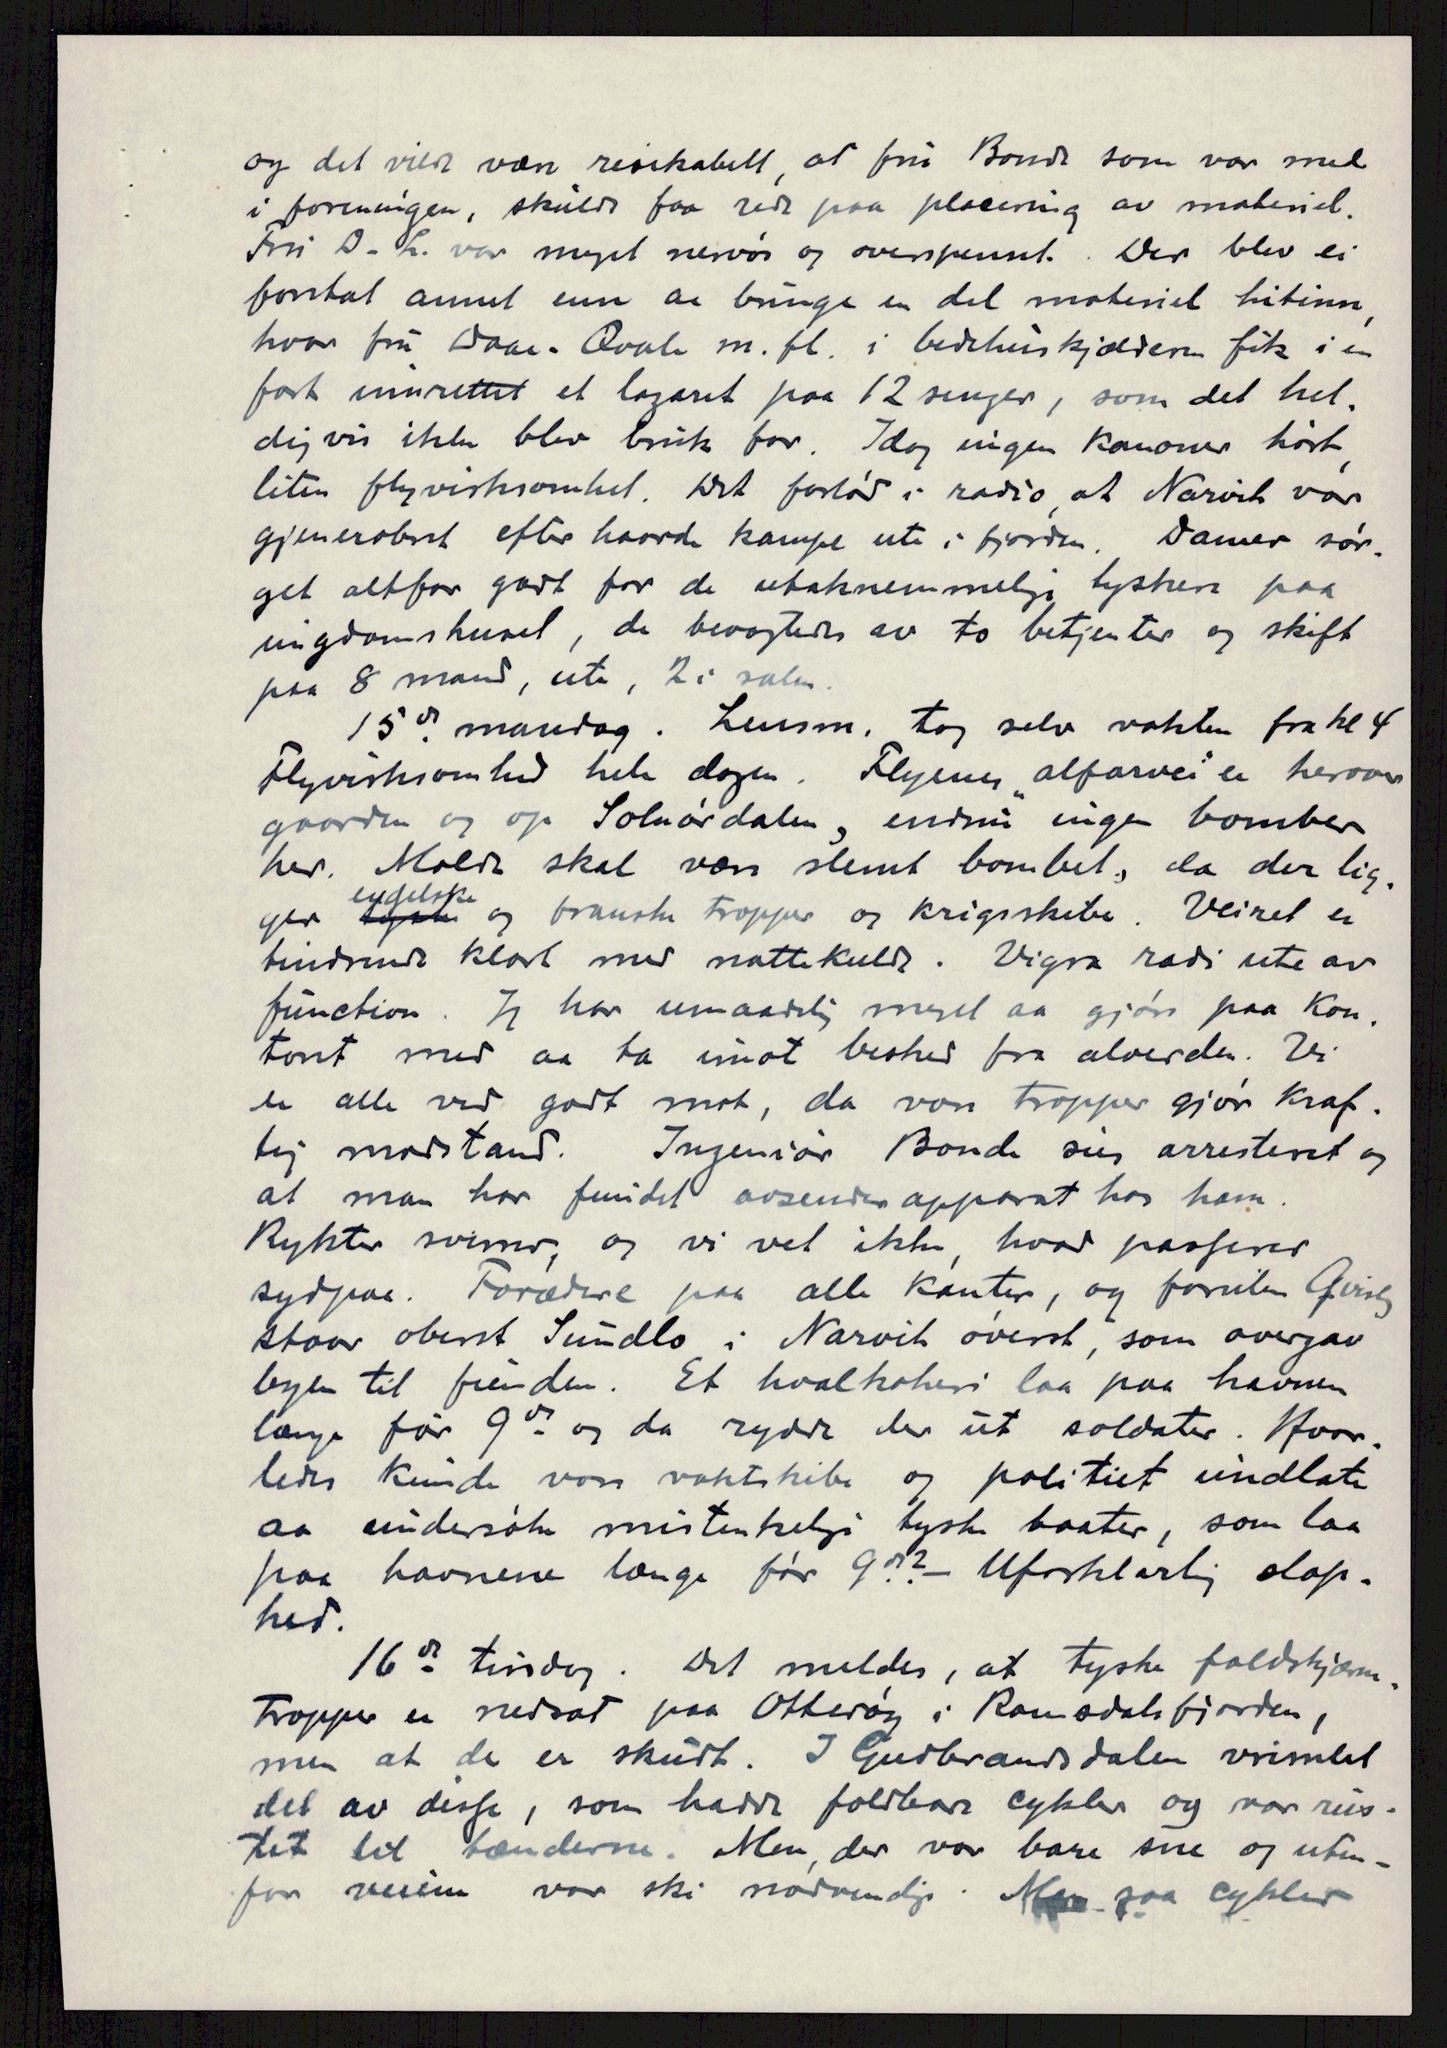 og det vilde være risikabelt, at frú Bonde som var med
i foreningen, skúlde faa rede paa placering av materiel.
Frú D-L. var meget nervös og overspennt. Der blev ei
foretat annet enn aa bringe en del materiel hitinn,
hvor frú Daae-Qvale m. fl. i bedehúskjælderen fik i en
fart innrettet et lazaret paa 12 senger, som det hel-
digvis ikke blev brúk for. Idag ingen kanoner hört,
liten flyvirksomhet. Det forlöd i radio, at Narvik var
gjenerobret efter haarde kampe ute i fjorden. Damer sör-
get altfor godt for de utaknemmelige tyskere paa
ungdomshuset, de bevogtedes av to betjenter og skift
paa 8 mand, ute, 2 i salen.
15de mandag. Lensm. tog selv vakten fra kl 4
Flyvirksomhed hele dagen. Flyenes "alfarvei" er herover
gaarden og op Solnördalen, endnú ingen bomber
her. Molde skal være slemt bombet, da der lig-
ger ~~tyske~~ engelske og franske tropper og krigsskibe. Veiret er
tindrende klart med nattekulde. Vigra radi ute av
fúnction. Jeg har umaadelig meget aa gjöre paa kon-
toret med aa ta imot besked fra alverden. Vi
er alle ved godt mot, da vore tropper gjör kraf-
tig modstand. Ingeniör Bonde sies arresteret og
at man har fundet avsenderapparat hos ham.
Rykter svirrer, og vi vet ikke, hvad passerer
sydpaa. Forædere paa alle kanter, og foruten Qvisling
staar oberst Súndlo i Narvik överst, som overgav
byen til fienden. Et hvalkokeri laa paa havnen
længe för 9de og da rydde der út soldater. Hvor-
ledes kúnde vore vaktskibe og politiet úndlate
aa úndersöke mistenkelige tyske baater, som laa
paa havnene længe för 9de? - Uforklarlig slap-
hed.
16de tirsdag. Det meldes, at tyske faldskjærm-
tropper er nedsat paa Otteröy i Romsdalsfjorden,
men at de er skúdt. I Gúdbrandsdalen vrimlet
det av disse, som hadde foldbare cykler og var rús-
tet til tænderne. Men, der var bare sne og uten-
for veiene var ski nödvendig. ~~Men~~ saa cykler